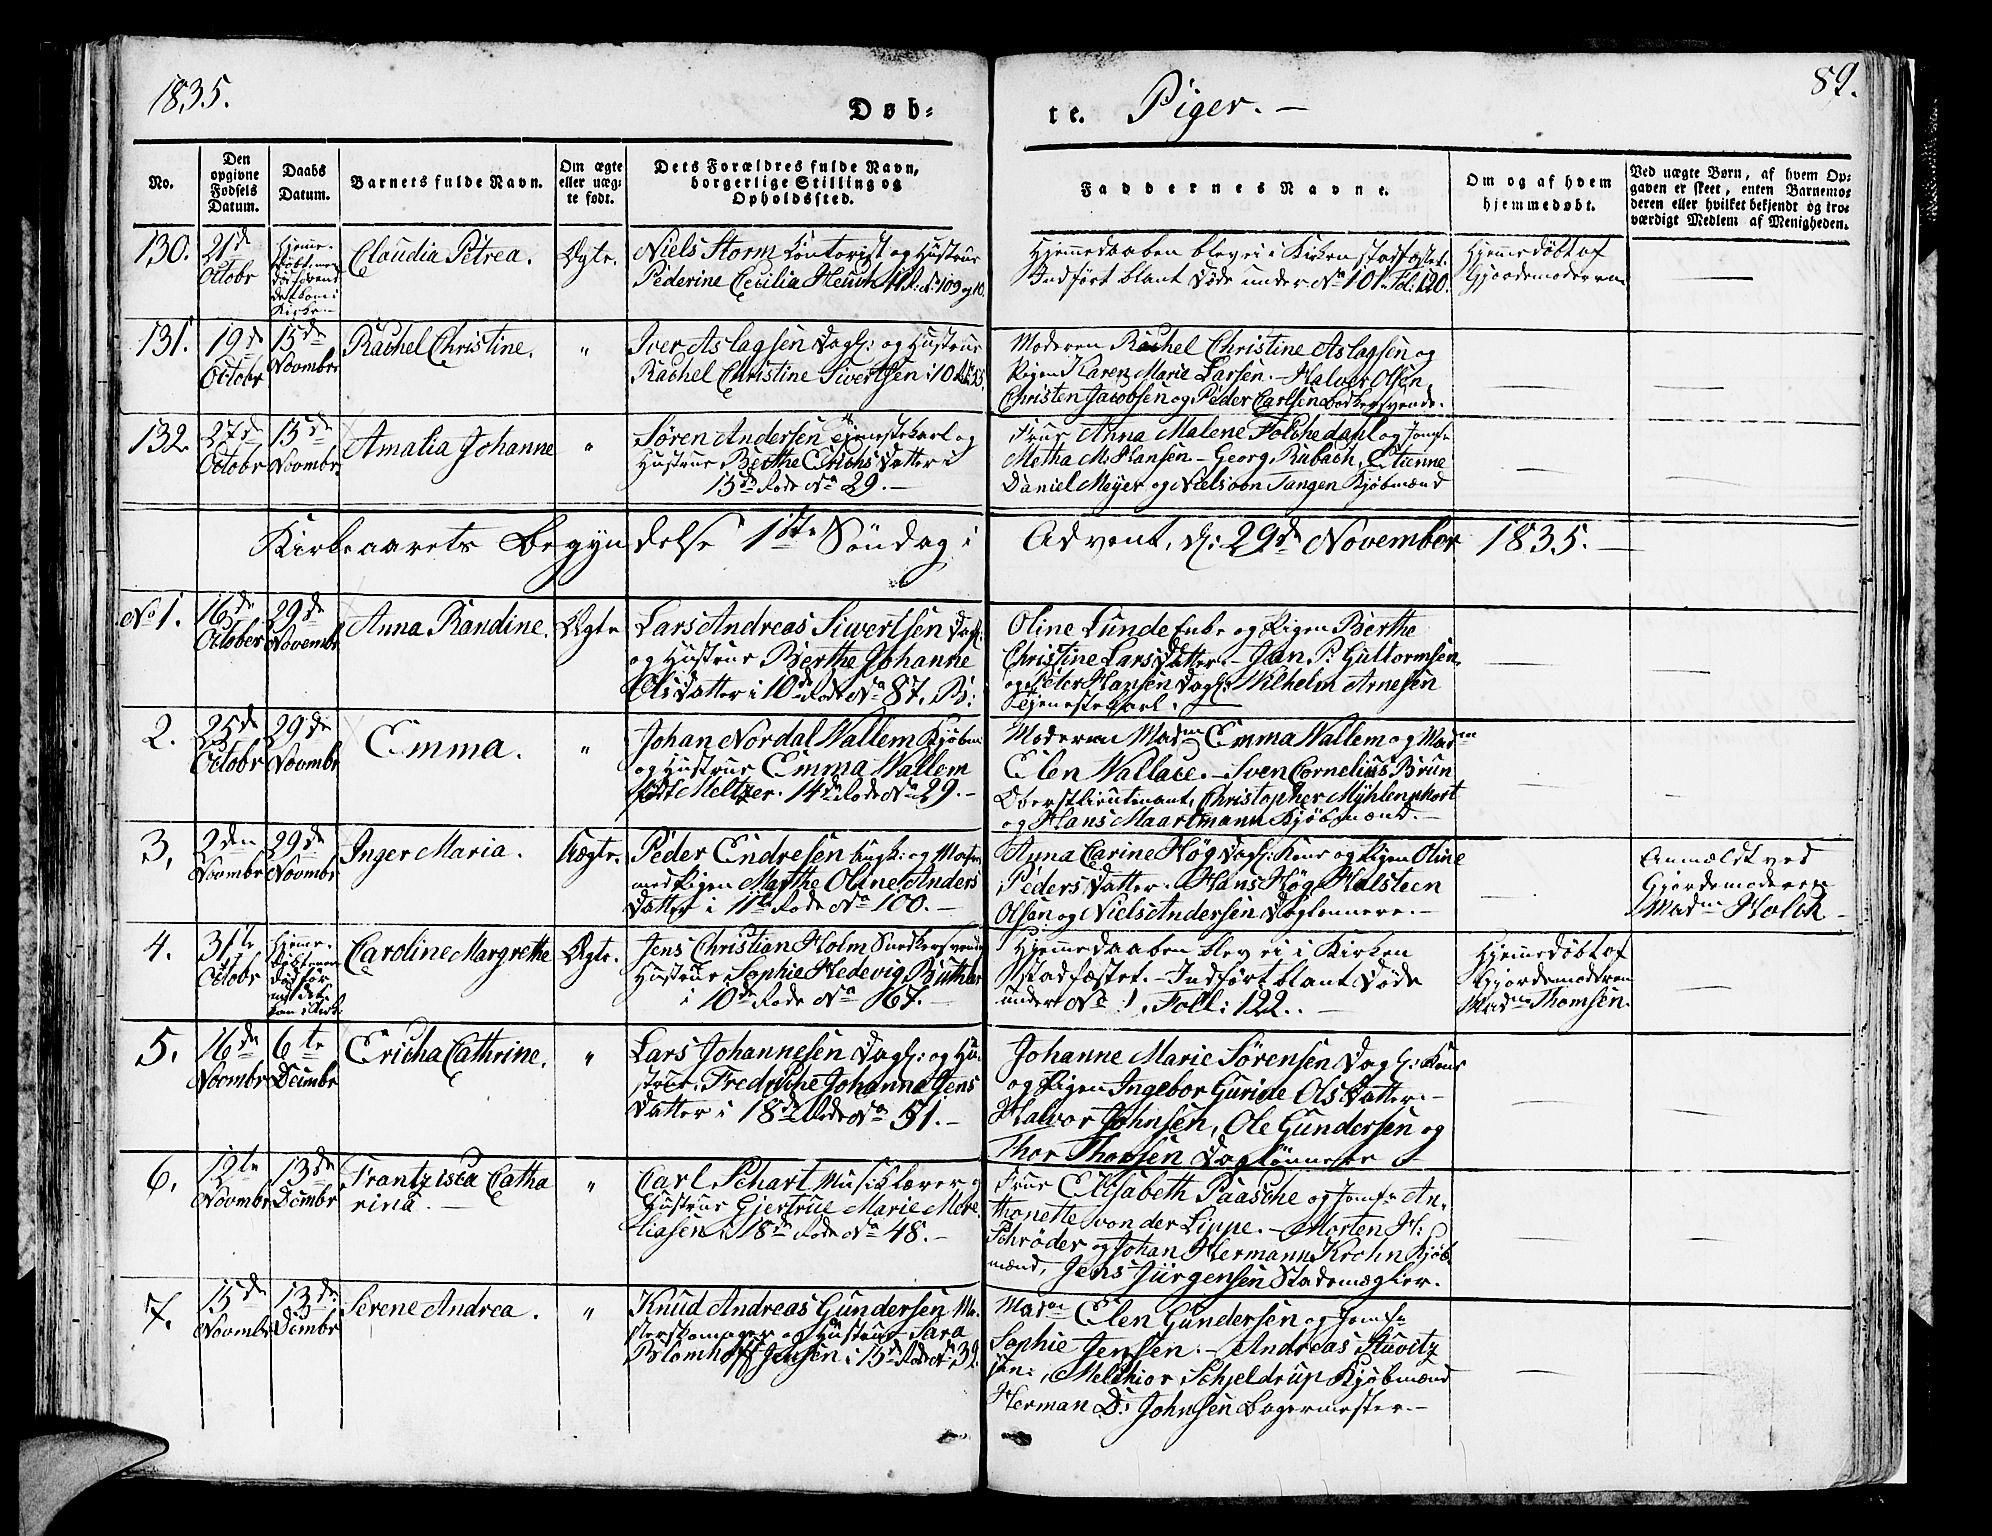 1835.
89.
Døb-
te. Piger. —
No.
Den opgivne Fødsels Datum.
Daabs Datum.
Barnets fulde Navn.
Om ægte eller uæg- te født.
Dets Forældres fulde Navn, borgerlige Stilling og Opholdssted.
Faddernes Navne.
Om og af hvem hjemmedøbt.
Ved uægte Børn, af hvem Op- gaven er skeet, enten Barnemo- deren eller hvilket bekjendt og tro- værdigt Medlem af Menigheden.
130. 21de Octobr
Claudia Petrea. Ægte.
Niels Storm Contorist og Hustrue
Pederine Cecilia Heuch
Hjemmedaaben blev ei i Kirken stadfæstet.
Indført blant Døde under No 101. Fol: 120.
Hjemmedøbt af
Gjordemoderen
131. 19de Octobr 15de Novmbr
Rachel Christine. "
Iver Aslagsen Dagl: og Hustrue
Rachel Christine Sivertsen i 10
Moderen Rachel Christine Aslagsen og
Pigen Karen Marie Larsen. — Halver Olsen,
Christen Jacobsen og Peder Carlsen Bødkersvende.
132. 27de Octobr 15de Novmbr
Amalia Johanne "
Søren Andersen Tjenestekarl og
Hustrue Berthe Erichsdatter i
15de Rode No 29. —
Frue Anna Malene Foschedahl og Jomfr
Metha M. Hansen — Georg Rubach, Etienne
Daniel Meyer og Nielsøn Tangen Kjøbmænd
Kirkeaarets Begyndelse 1ste Søndag i Advent, d: 29de November 1835. —
No 1. 16de October 29de Novembr
Anna Randine. Ægte
Lars Andreas Siwertsen Dagl:
og Hustrue Berthe Johanne
Olsdatter i 10de Rode No 87. B:
Oline Lunde Enke og Pigen Berthe
Christine Larsdatter. — Jan P: Guttormsen,
og Peter Hansen Dagl: Wilhelm Arnesen
Tjenestekarl.
2. 25de Octobr 29de Novmbr
Emma. "
Johan Nordal Wallem Kjøbm:
og Hustrue Emma Wallem
født Meltzer. 14de Rode No 29. —
Moderen Madm Emma Wallem og Madm
Elen Wallace. — Sven Cornelius Brun
Oberstlieutenant, Christopher Mÿhlenphort
og Hans Maartmann Kjøbmænd. —
3. 2den Novmbr 29de Novmbr
Inger Maria. Uægte.
Peder Endresen Ungk: og Matros
med Pigen Marthe Oline Anders
Datter i 11te Rode No 100. —
Anna Carine Høg Dagl: Kone og Pigen Oline
Pedersdatter. Hans Høg, Holsteen
Olsen og Niels Andersen Daglønnere. —
Anmældt ved
Gjordemoderen
Madm Holck
4. 31te Octobr
Caroline Margrethe Ægte.
Jens Christian Holm Snedkersvend
Hustrue Sophie Hedevig Buthler
i 10de Rode No 67. —
Hjemmedaaben blev ei i Kirken
stadfæstet. — Indført blant Døde
under No 1. Foll: 122. —
Hjemmedøbt af
Gjordemoderen
Madm Thomsen.
5. 16de Novmbr 6te Decmbr
Ericha Cathrine. "
Lars Johannesen Dagl: og Hu-
strue Fredriche Johanne Jens
Datter i 18de Rode No 51. —
Johanne Marie Sørensen Dagl: Kone
og Pigen Ingebor Gurine Olsdatter. —
Halvor Johnsen, Ole Gundersen og
Thor Thorsen Daglønnere
6. 12te Novmbr 13de Dcmbr
Frantzisca Catha
rina. — "
Carl Schart Musiklærer og
Hustrue Gjertrue Marie More-
liasen i 18de Rode No 48. —
Frue Elisabeth Paasche og Jomfr An-
thonette von der Lippe. — Morten H:
Schrøder og Johan Hermann Krohn Kjøb-
mænd, Jens Jürgensen Stadsmægler.
7. 15de Novmbr 13de Dcmbr
Serene Andrea. "
Knud Andreas Gundersen Me-
sterskomager og Hustrue Sara
Blomhoff Jensen i 15de Rode No 32.
Madm Elen Gundersen og Jomfr
Sophie Jensen. — Andreas Stuvitz
jun:, Melchior Schjeldrup Kjøbmænd
Herman D: Johnsen Bagermester. —